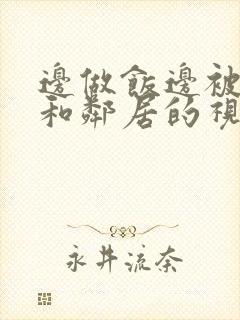 邊做飯邊被
和鄰居的視
永井流奈